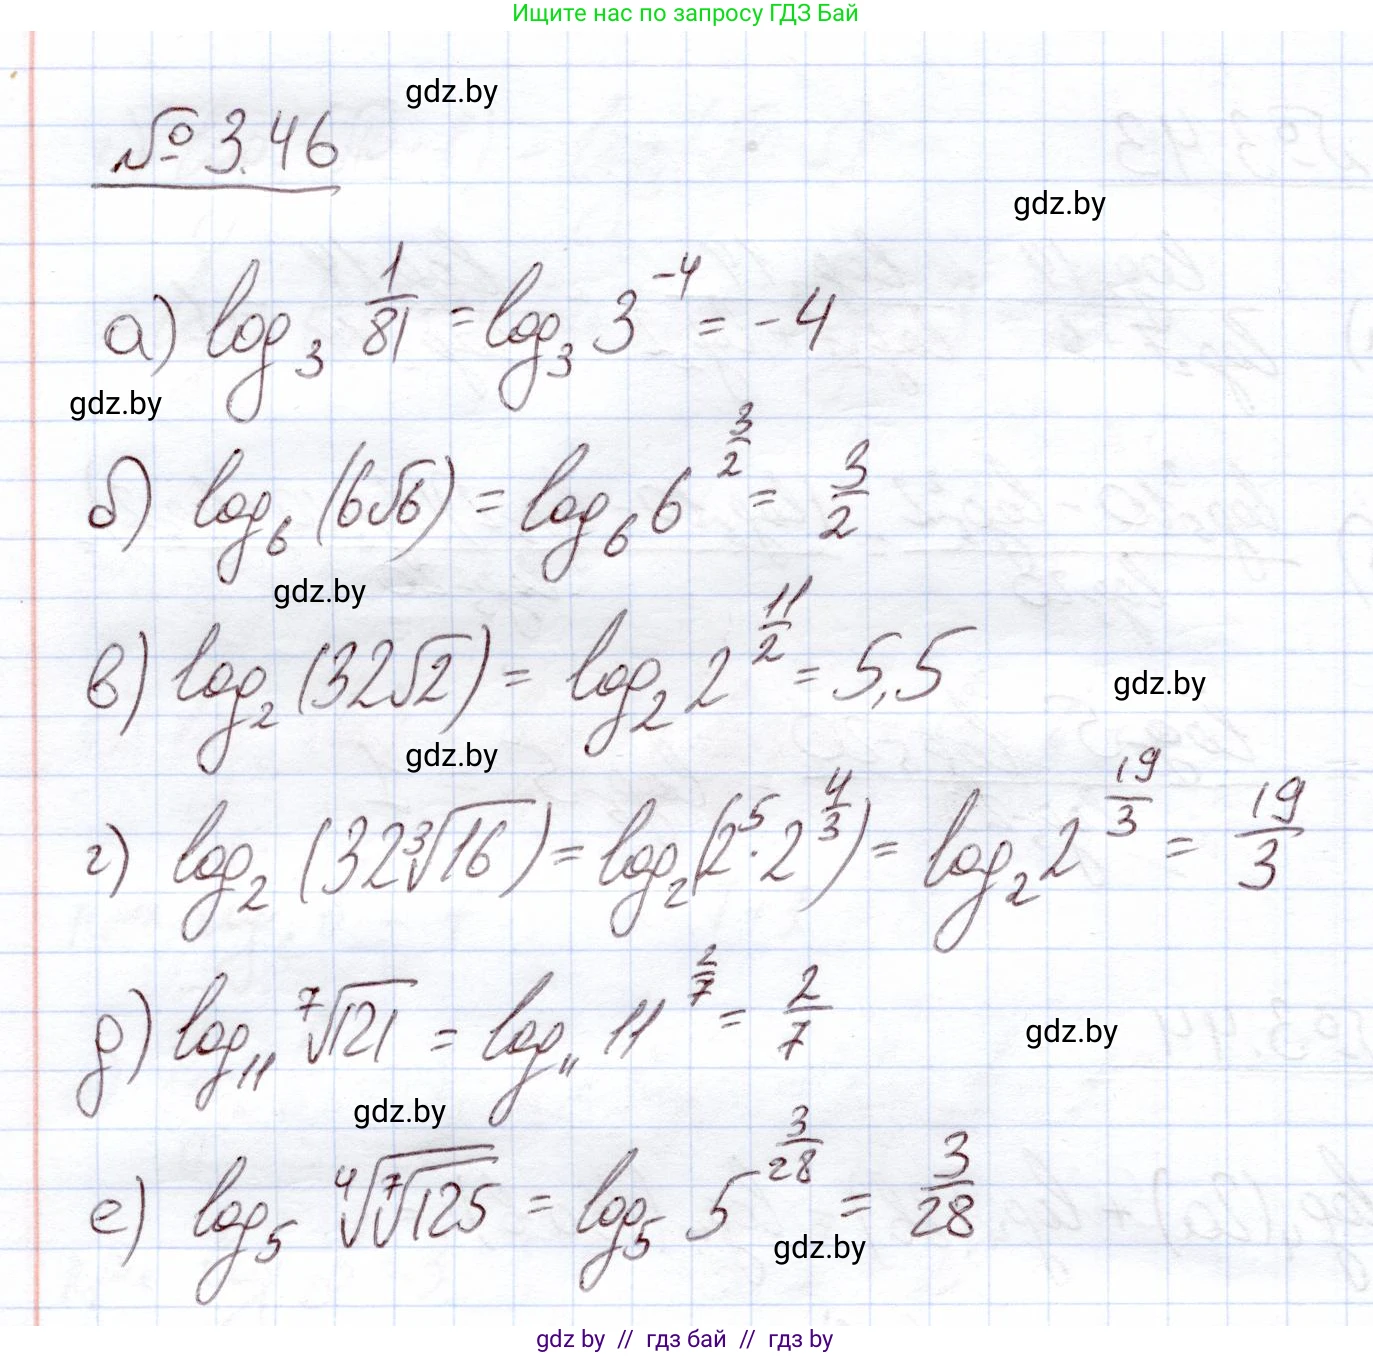 Ищите нас по запросу ГДЗ Бай
gdz.by
№ 3.46
gdz.by
а) log₃ 1/81 = log₃ 3^(-4) = -4
gdz.by
б) log₆ (6√6) = log₆ 6^(3/2) = 3/2
gdz.by
в) log₂ (32√2) = log₂ 2^(11/2) = 5,5
gdz.by
gdz.by
г) log₂ (32 ³√16) = log₂ (2⁵ · 2^(4/3)) = log₂ 2^(19/3) = 19/3
д) log₁₁ ⁷√121 = log₁₁ 11^(2/7) = 2/7
gdz.by
gdz.by
е) log₅ ⁴√(⁷√125) = log₅ 5^(3/28) = 3/28
gdz.by
gdz by // гдз бай // гдз by